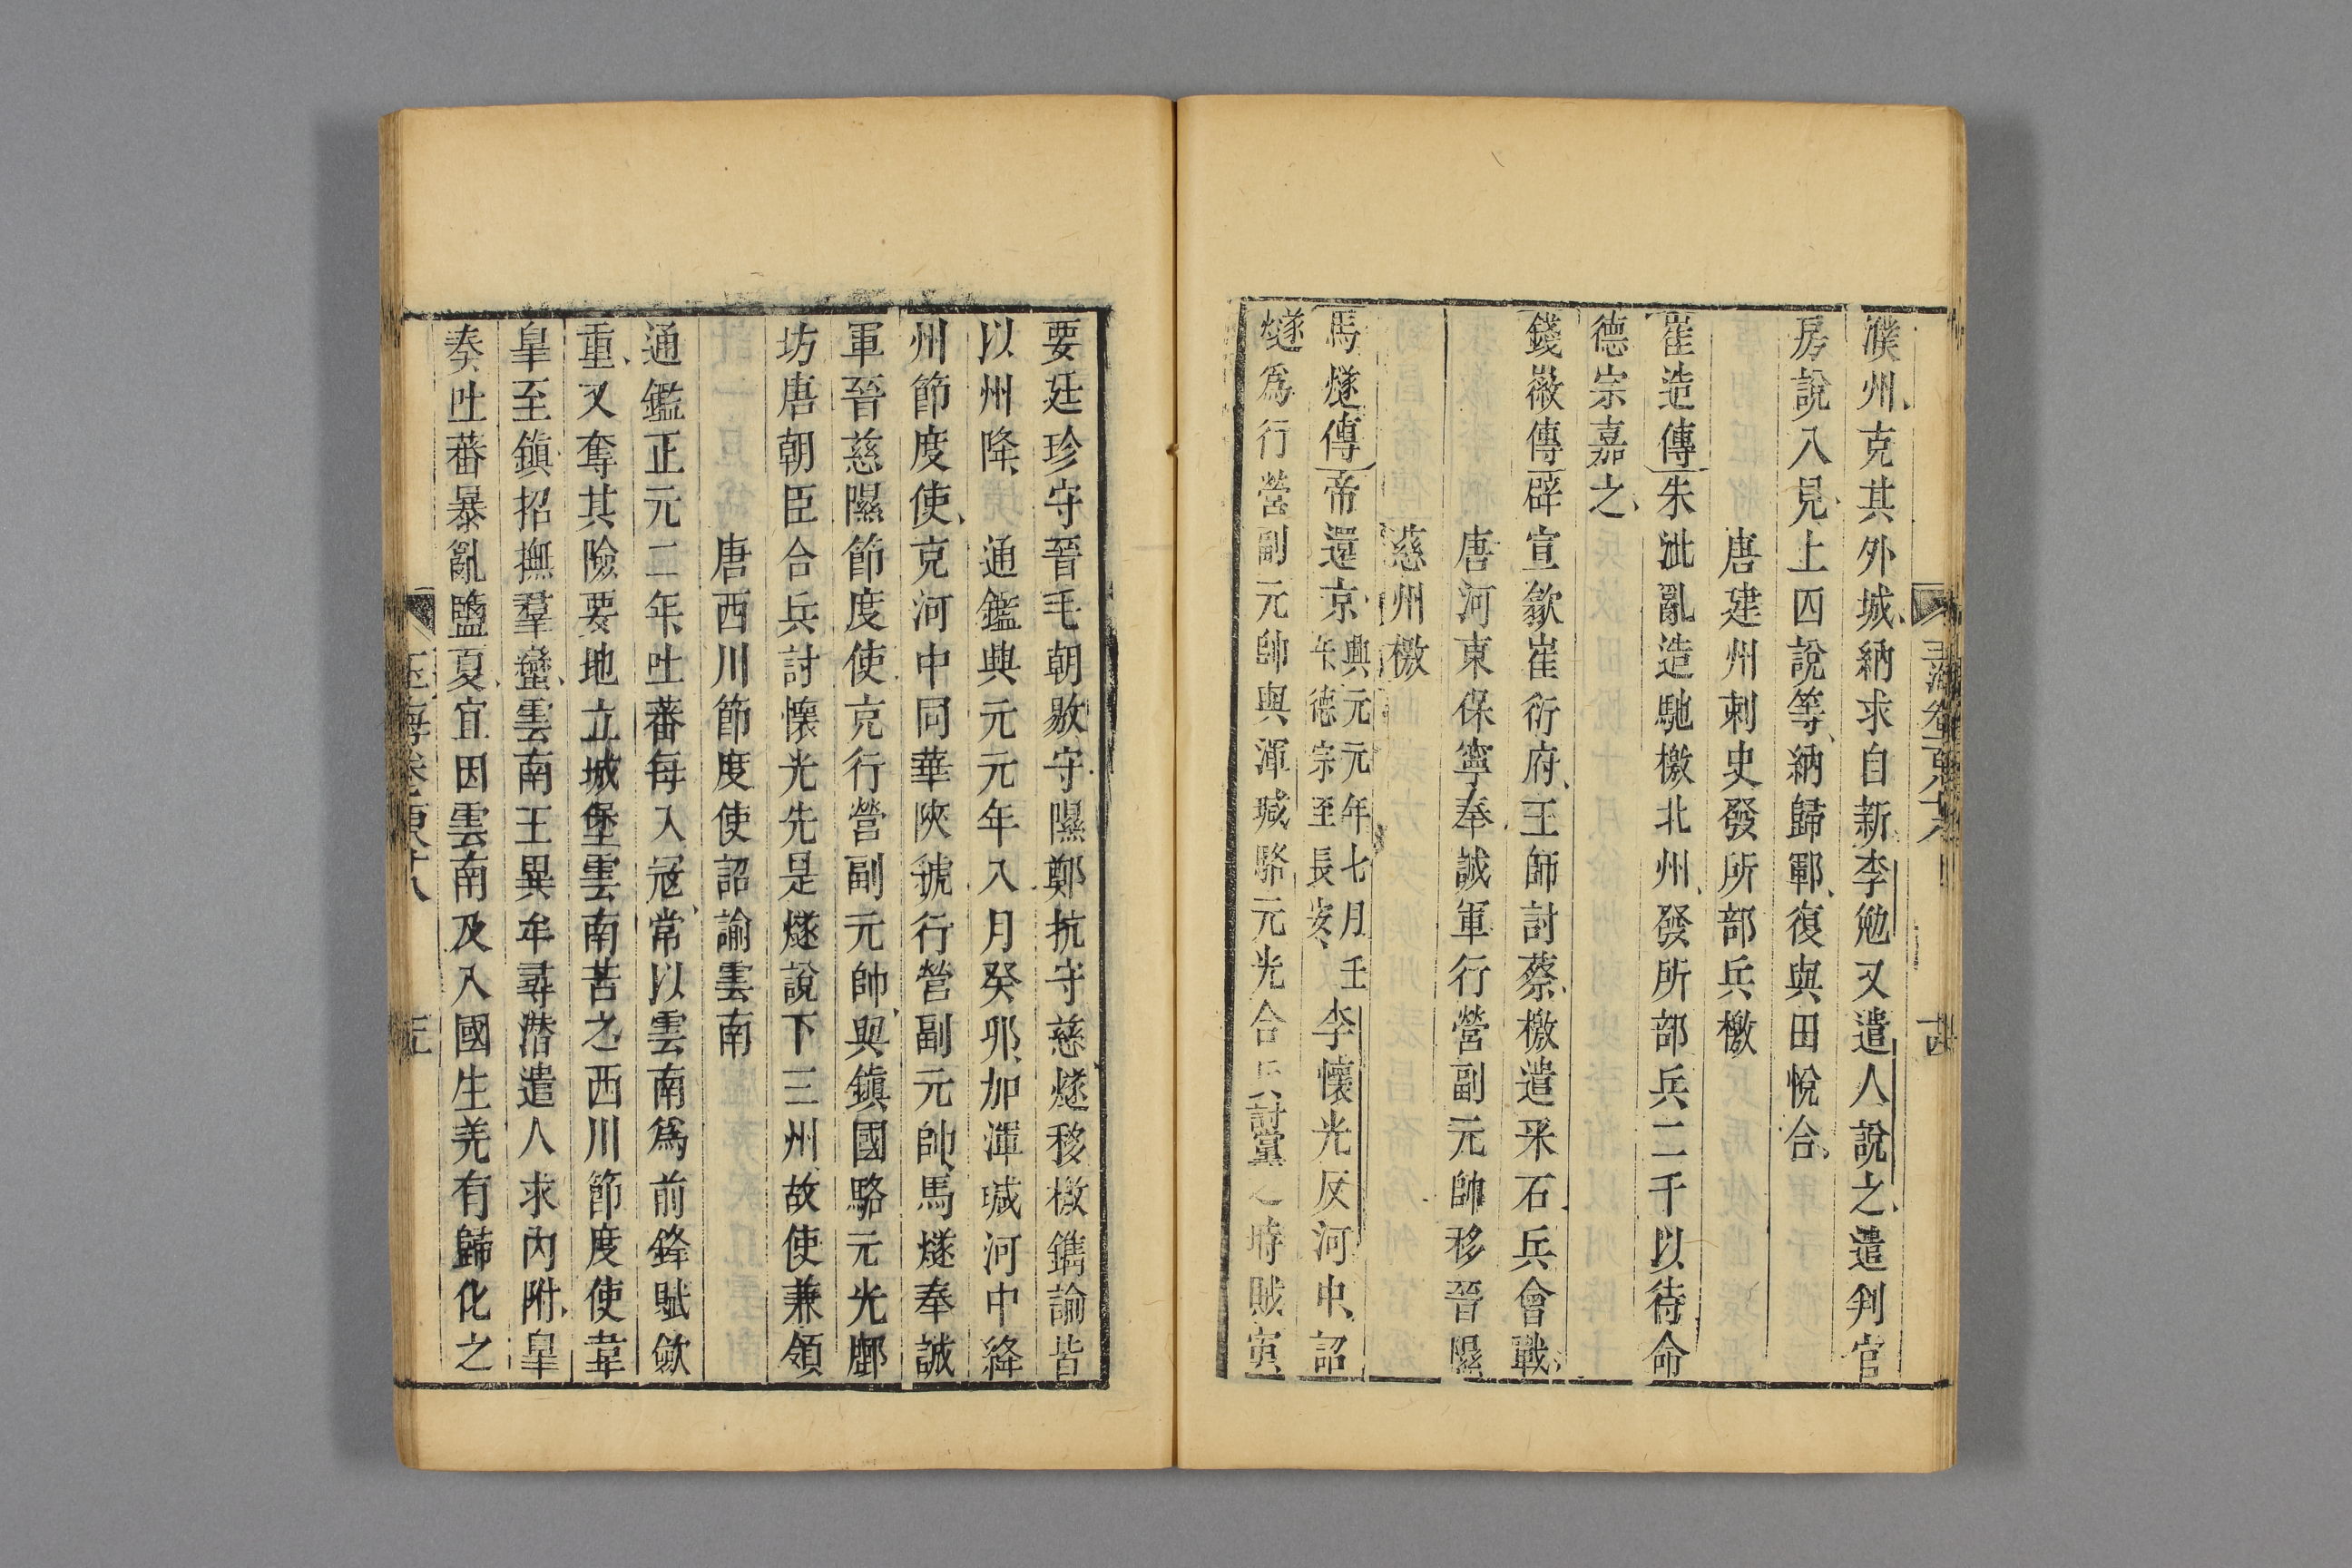 濮州克其外城納求自新李勉又遣人說之遣判官
房說入見上四說等納歸鄆復與田悅合
唐建州刺史發所部兵檄
崔造傳朱泚亂造馳檄北州發所部兵二千以待命
德宗嘉之
錢徽傳辟宣歙崔衍府王師討蔡檄遣采石兵會戰
唐河東保寧奉誠軍行營副元帥移晉隰
慈州檄
馬燧傳帝還京興元元年七月壬午德宗至長安李懷光反河中詔
燧為行營副元帥與渾瑊駱元光合兵討之時賊
要廷珍守晉毛朝敭守隰鄭抗守慈燧移檄鐫諭皆
以州降通鑑興元元年八月癸卯加渾瑊河中絳
州節度使充河中同華陝虢行營副元帥馬燧奉誠
軍晉慈隰節度使充行營副元帥與鎮國駱元光鄜
坊唐朝臣合兵討懷光先是燧說下三州故使兼領
唐西川節度使詔諭雲南
通鑑正元二年吐蕃每入寇常以雲南為前鋒賦歛
重又奪其險要地立城堡雲南苦之西川節度使韋
皐至鎮招撫羣蠻雲南王異牟尋潛遣人求內附皐
奏吐蕃暴亂鹽夏宜因雲南及入國生羌有歸化之